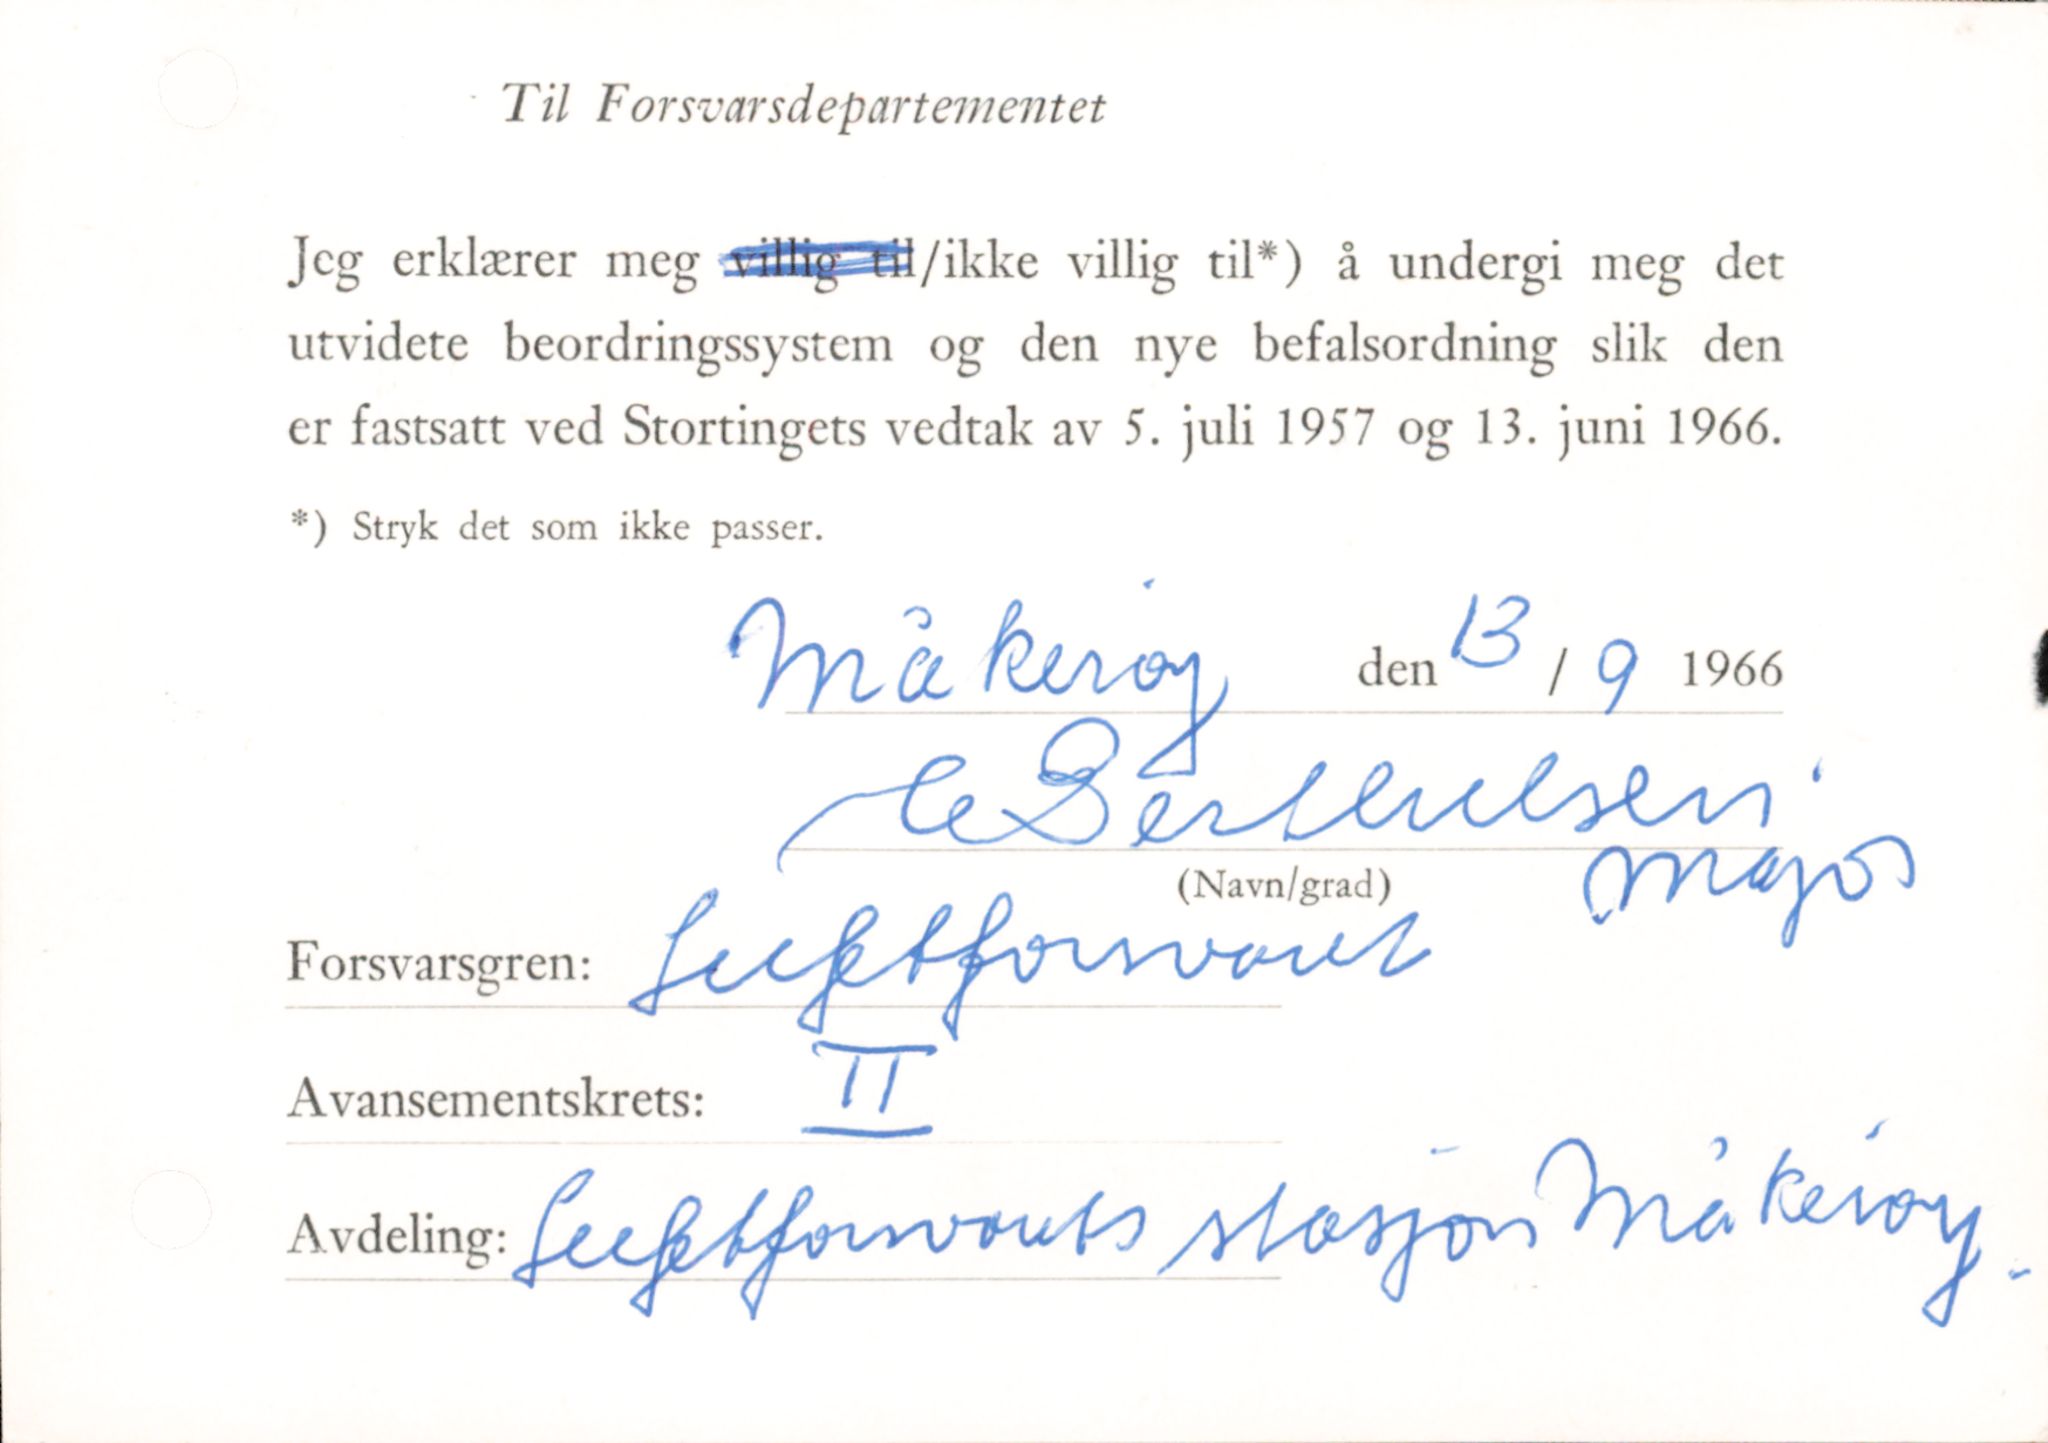 Til Forsvarsdepartementet
Jeg erklærer meg villig til/ikke villig til*) å undergi meg det
utvidete beordringssystem og den nye befalsordning slik den
er fastsatt ved Stortingets vedtak av 5. juli 1957 og 13. juni 1966.
*) Stryk det som ikke passer.
Måkerøy den 13 / 9 1966
Berthelsen
(Navn/grad) Major
Forsvarsgren: Luftforsvaret
Avansementskrets: II
Avdeling: Luftforsvarets stasjon Måkerøy.